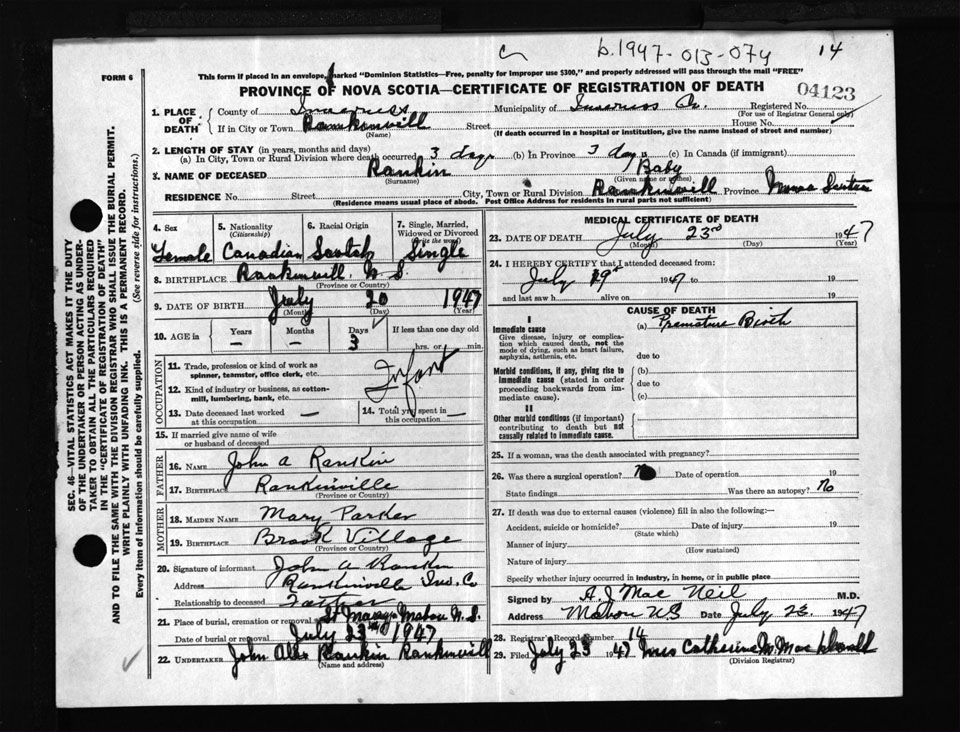 b.1947-013-074 14
FORM 6
This form if placed in an envelope, marked "Dominion Statistics—Free, penalty for improper use $300," and properly addressed will pass through the mail "FREE"
PROVINCE OF NOVA SCOTIA—CERTIFICATE OF REGISTRATION OF DEATH
04123
1. PLACE OF DEATH County of Inverness Municipality of Inverness Co. Registered No.
(For use of Registrar General only)
If in City or Town Rankinvill Street House No.
(Name) (If death occurred in a hospital or institution, give the name instead of street and number)
2. LENGTH OF STAY (in years, months and days)
(a) In City, Town or Rural Division where death occurred 3 days (b) In Province 3 days (c) In Canada (if immigrant)
3. NAME OF DECEASED Rankin Baby
(Surname) (Given name or names)
RESIDENCE No. Street City, Town or Rural Division Rankinvill Province Nova Scotia
(Residence means usual place of abode. Post Office Address for residents in rural parts not sufficient)
4. Sex 5. Nationality (Citizenship) 6. Racial Origin 7. Single, Married, Widowed or Divorced (write the word)
Female Canadian Scotch Single
8. BIRTHPLACE Rankinvill, N.S.
(Province or Country)
9. DATE OF BIRTH July 20 1947
(Month) (Day) (Year)
10. AGE in Years Months Days If less than one day old
— — 3 hrs. or min.
OCCUPATION
11. Trade, profession or kind of work as spinner, teamster, office clerk, etc. Infant
12. Kind of industry or business, as cotton-mill, lumbering, bank, etc.
13. Date deceased last worked at this occupation — 14. Total yrs. spent in this occupation —
15. If married give name of wife or husband of deceased
FATHER
16. NAME John A Rankin
17. BIRTHPLACE Rankinville
(Province or Country)
MOTHER
18. MAIDEN NAME Mary Parker
19. BIRTHPLACE Brook Village
(Province or Country)
20. Signature of informant John A Rankin
Address Rankinville Inv. Co
Relationship to deceased Father
21. Place of burial, cremation or removal St Marys Mabou N.S.
Date of burial or removal July 23rd 1947
22. UNDERTAKER John Alex Rankin Rankinvill
(Name and address)
MEDICAL CERTIFICATE OF DEATH
23. DATE OF DEATH July 23rd 1947
(Month) (Day) (Year)
24. I HEREBY CERTIFY that I attended deceased from:
July 19 1947 to 19
and last saw h alive on 19
CAUSE OF DEATH
I
Immediate cause (a) Premature Birth
Give disease, injury or complication which caused death, not the mode of dying, such as heart failure, asphyxia, asthenia, etc. due to
Morbid conditions, if any, giving rise to immediate cause (stated in order proceeding backwards from immediate cause). (b)
due to
(c)
II
Other morbid conditions (if important) contributing to death but not causally related to immediate cause.
25. If a woman, was the death associated with pregnancy?
26. Was there a surgical operation? No Date of operation 19
State findings Was there an autopsy? No
27. If death was due to external causes (violence) fill in also the following:—
Accident, suicide or homicide? Date of injury 19
(State which)
Manner of injury
(How sustained)
Nature of injury
Specify whether injury occurred in industry, in home, or in public place
Signed by A.J. Mac Neil M.D.
Address Mabou N S Date July 23 1947
28. Registrar's Record Number 14
29. Filed July 23 1947 Mrs Catherine M.
(Division Registrar)
SEC. 46—VITAL STATISTICS ACT MAKES IT THE DUTY
OF THE UNDERTAKER OR PERSON ACTING AS UNDER-
TAKER TO OBTAIN ALL THE PARTICULARS REQUIRED
IN THE "CERTIFICATE OF REGISTRATION OF DEATH"
AND TO FILE THE SAME WITH THE DIVISION REGISTRAR WHO SHALL ISSUE THE BURIAL PERMIT.
WRITE PLAINLY WITH UNFADING INK. THIS IS A PERMANENT RECORD.
Every item of information should be carefully supplied. (See reverse side for instructions.)